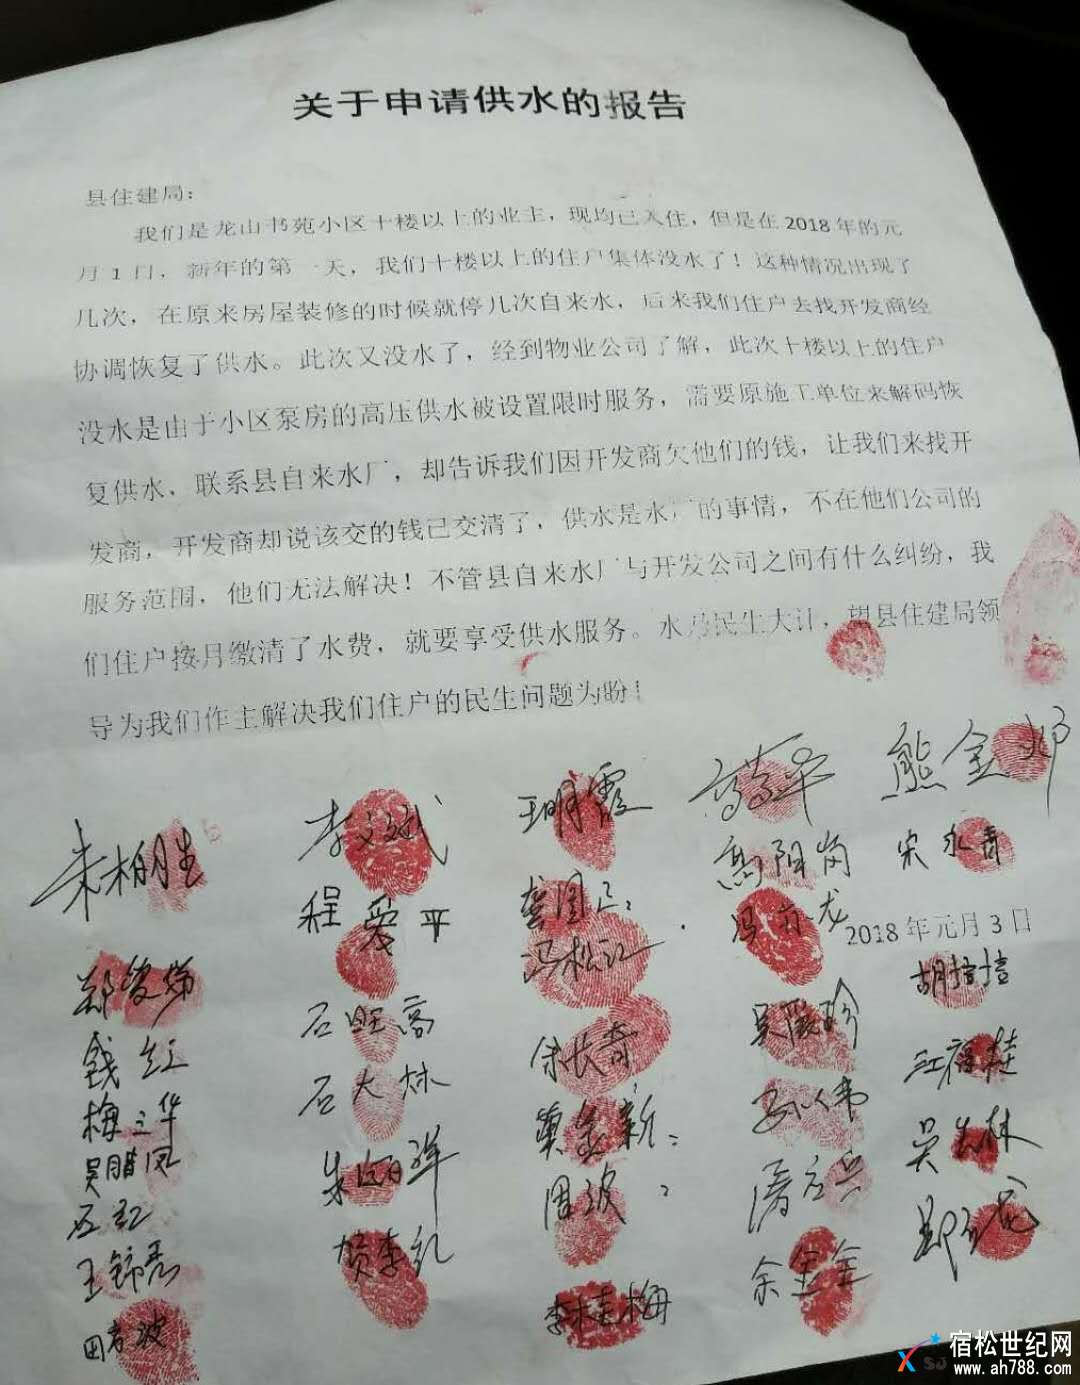 关于申请供水的报告
县住建局：
我们是龙山书苑小区十楼以上的业主，现均已入住，但是在2018年的元
月1日，新年的第一天，我们十楼以上的住户集体没水了！这种情况出现了
几次，在原来房屋装修的时候就停几次自来水，后来我们住户去找开发商经
协调恢复了供水。此次又没水了，经到物业公司了解，此次十楼以上的住户
没水是由于小区泵房的高压供水被设置限时服务，需要原施工单位来解码恢
复供水、联系县自来水厂，却告诉我们因开发商欠他们的钱，让我们来找开
发商，开发商却说该交的钱已交清了，供水是水厂的事情，不在他们公司的
服务范围，他们无法解决！不管县自来水厂与开发公司之间有什么纠纷，我
们住户按月缴清了水费，就要享受供水服务。水乃民生大计，望县住建局领
导为我们作主解决我们住户的民生问题为盼！
朱柏生 李文斌 王明霞 熊金邓
程爱平 龚国正 宋永青
冯松江
2018年元月3日
石旺高 余长奇 吴霞珍 胡培培
钱红 石大林 江福桂
梅立华 吴生林
吴腊凤 周波
王锦亮 余金全 郑家龙
田方波 李桂梅
宿松世纪网
www.ah788.com